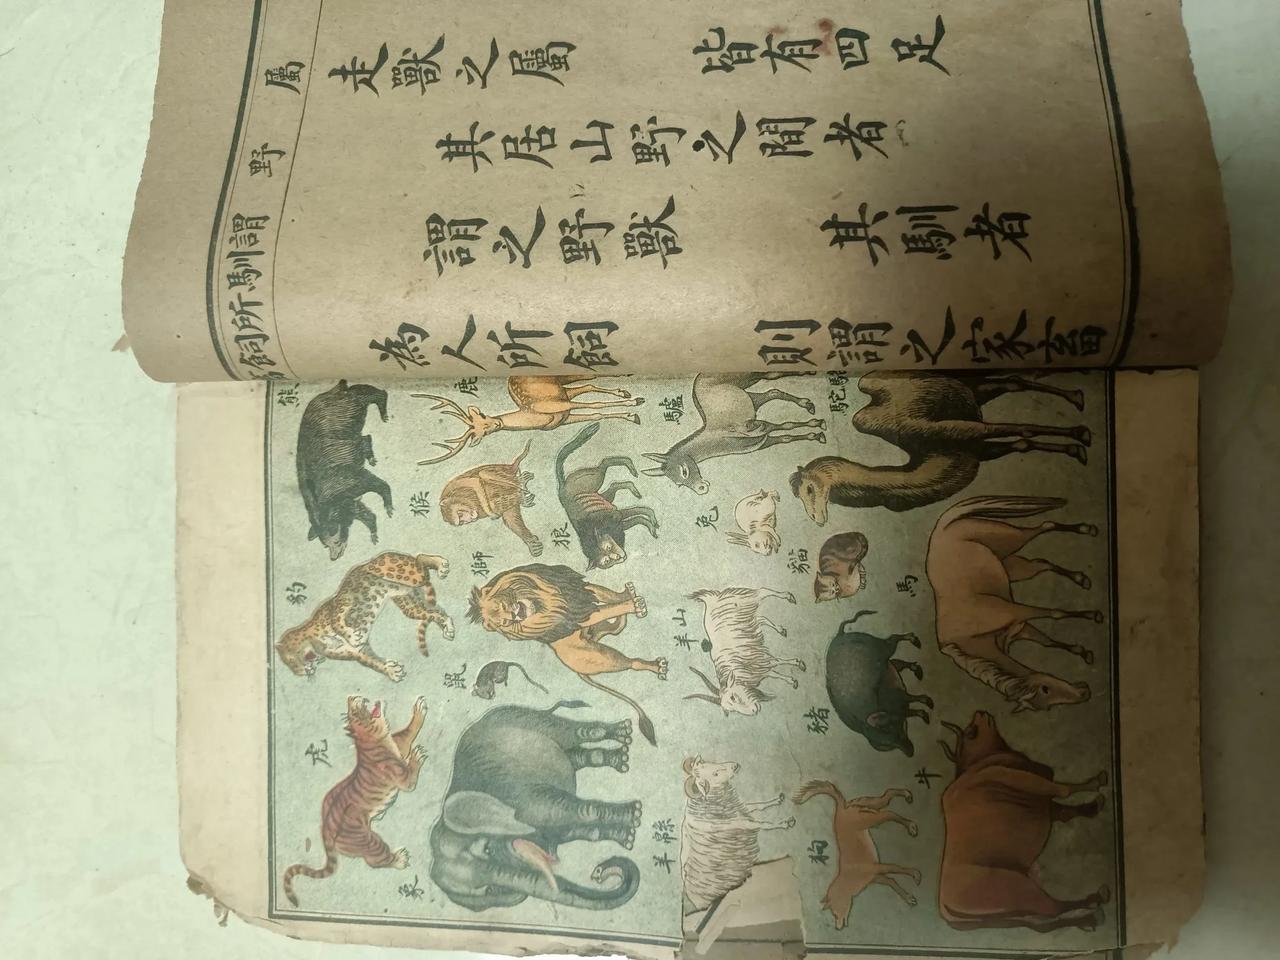 屬
野
謂馴所飼
走獸之屬 皆有四足
其居山野之間者
謂之野獸 其馴者
為人所飼 則謂之家畜
熊
鹿
驢
駱駝
猴
狼
兔
貓
豹
獅
山羊
馬
鼠
豬
虎
象
緜羊
狗
牛